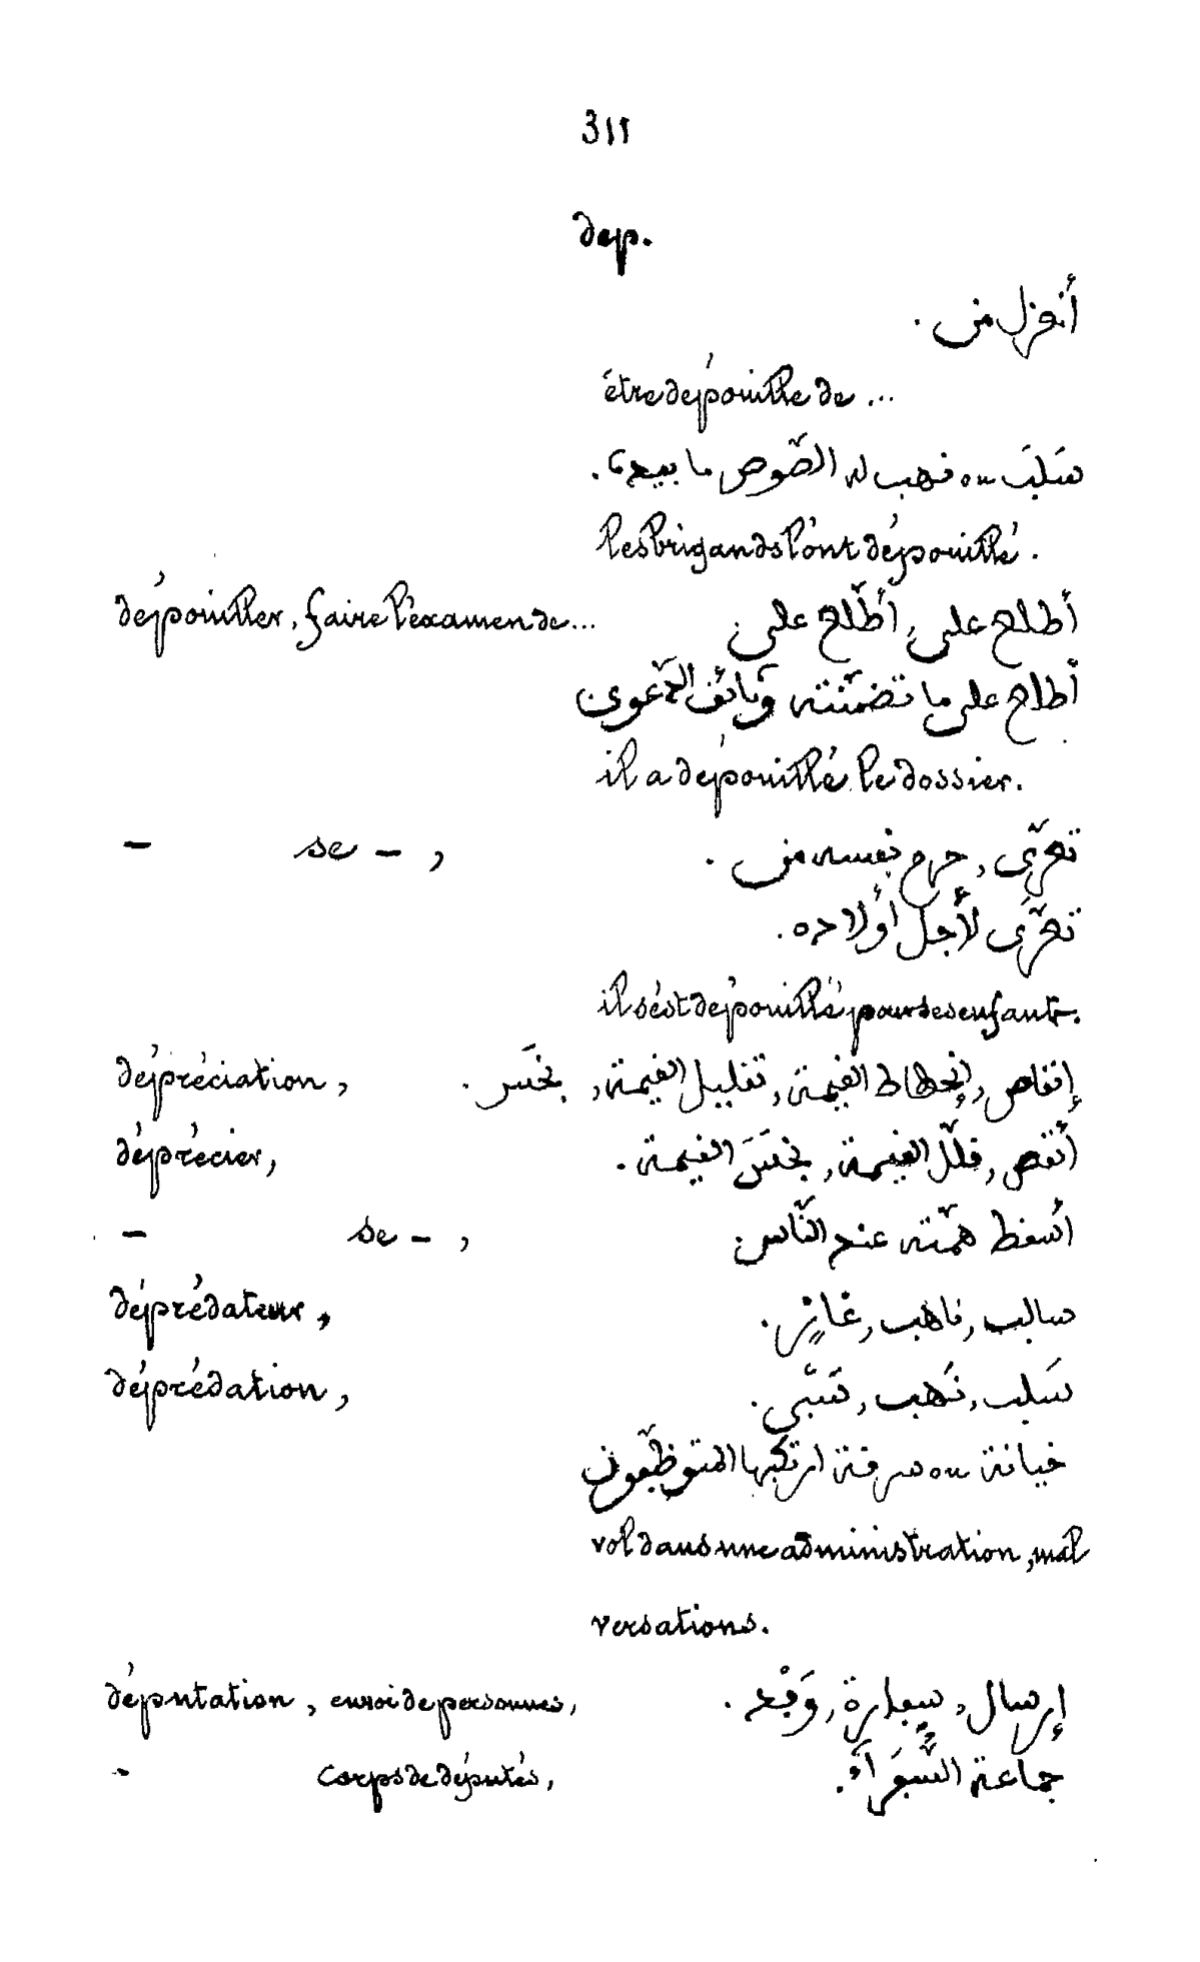 311
dep.
أنعزل من .
être dépouillé de ...
سَلَبَ ou نهب له الصّوص ما بيده .
les brigands l'ont dépouillé .
dépouiller, faire l'examen de ... أطلع على , أطّلع على .
أطلع على ما تضمّنته وثائق الدّعوى
il a dépouillé le dossier.
— se — , تعرّى , حرم نفسه من .
تعرّى لأجل أولاده .
il s'est dépouillé pour ses enfants.
dépréciation , إنقاص , إنحطاط القيمة , تقليل القيمة , بخس .
déprécier, أنقص , قلّل القيمة , بخسَ القيمة .
— se — , أسقط همّته عند النّاس .
déprédateur , سالب , ناهب , غازٍ .
déprédation , سَلب , نَهب , سَبّي .
خيانة ou سرقة ارتكبها المتوظّفون
vol dans une administration , mal
versations.
députation , envoi de personnes, إرسال , سِفارة , وَفْد .
- corps de députés , جماعة السُّفَرآء .